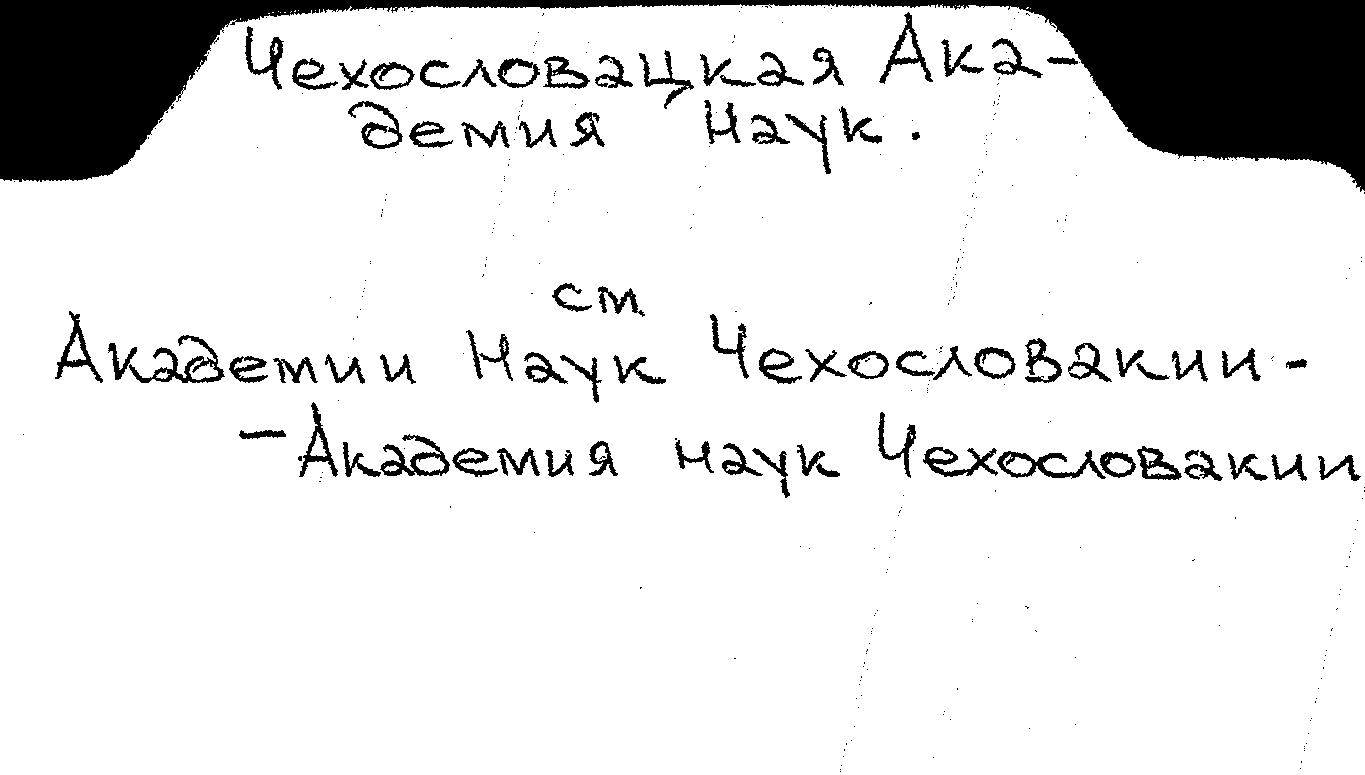 Чехословацкая Ака-
демия Наук.
ст
Академии Наук Чехословакии -
- Академия наук Чехословакии